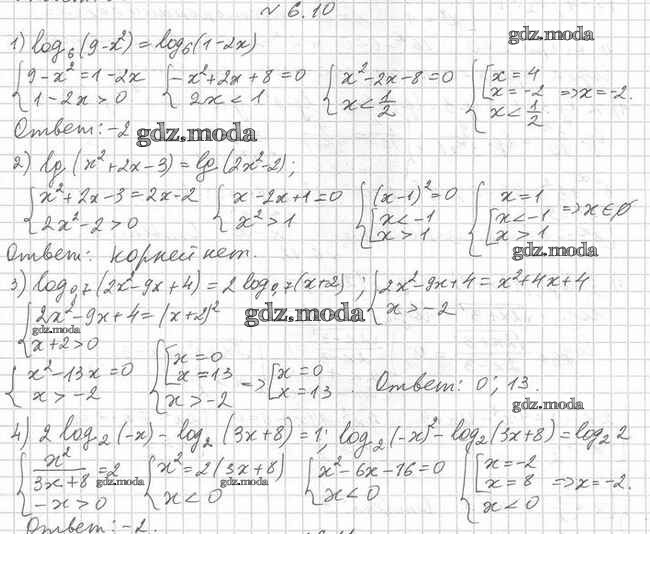 № 6.10
gdz.moda
1) log₆(9-x²) = log₆(1-2x)
{9-x² = 1-2x; 1-2x > 0 {-x²+2x+8 = 0; 2x < 1 {x²-2x-8 = 0; x < 1/2 {[x = 4; x = -2; x < 1/2 => x = -2.
Ответ: -2 gdz.moda
2) lg(x²+2x-3) = lg(2x²-2);
{x²+2x-3 = 2x-2; 2x²-2 > 0 {x-2x+1 = 0; x² > 1 {(x-1)² = 0; [x < -1; x > 1 {x = 1; [x < -1; x > 1 => x ∈ ∅
gdz.moda
Ответ: корней нет.
3) log₀,₇(2x²-9x+4) = 2log₀,₇(x+2); {2x²-9x+4 = x²+4x+4; x > -2
{2x²-9x+4 = (x+2)²; x+2 > 0
gdz.moda gdz.moda
{x²-13x = 0; x > -2 {[x = 0; x = 13; x > -2 => [x = 0; x = 13. Ответ: 0; 13.
gdz.moda
4) 2log₂(-x) - log₂(3x+8) = 1; log₂(-x)² - log₂(3x+8) = log₂2
{x²/(3x+8) = 2; -x > 0 {x² = 2(3x+8); x < 0 {x²-6x-16 = 0; x < 0 {[x = -2; x = 8; x < 0 => x = -2.
gdz.moda gdz.moda gdz.moda
Ответ: -2.